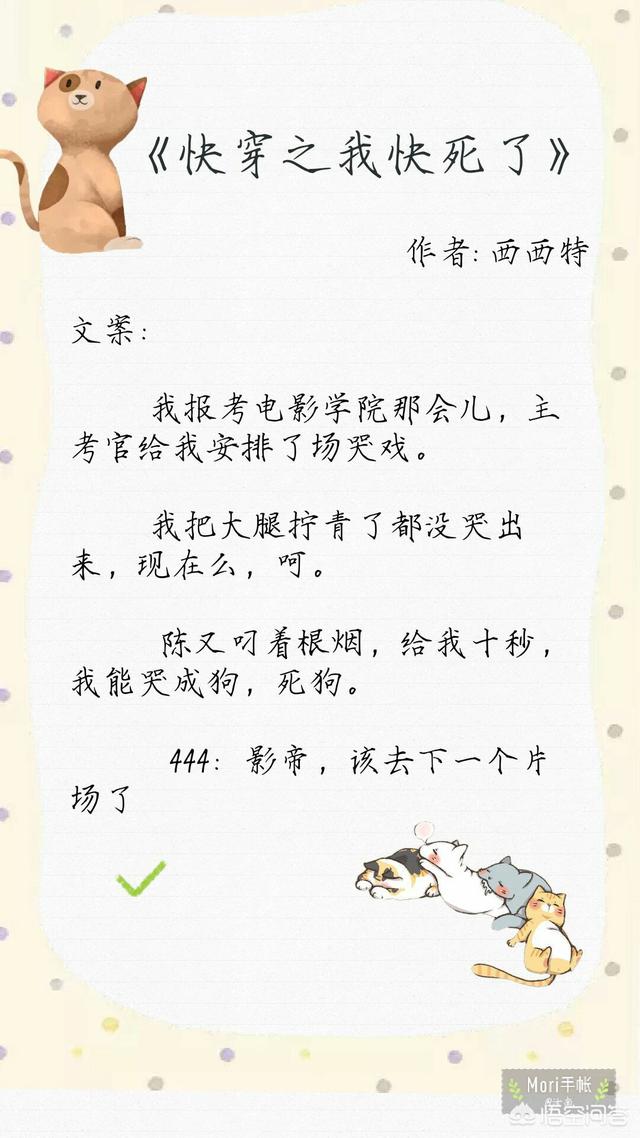 《快穿之我快死了》
作者：西西特
文案：
我报考电影学院那会儿，主
考官给我安排了场哭戏。
我把大腿拧青了都没哭出
来，现在么，呵。
陈又叼着根烟，给我十秒，
我能哭成狗，死狗。
444：影帝，该去下一个片
场了
Mori手帐
悟空问答